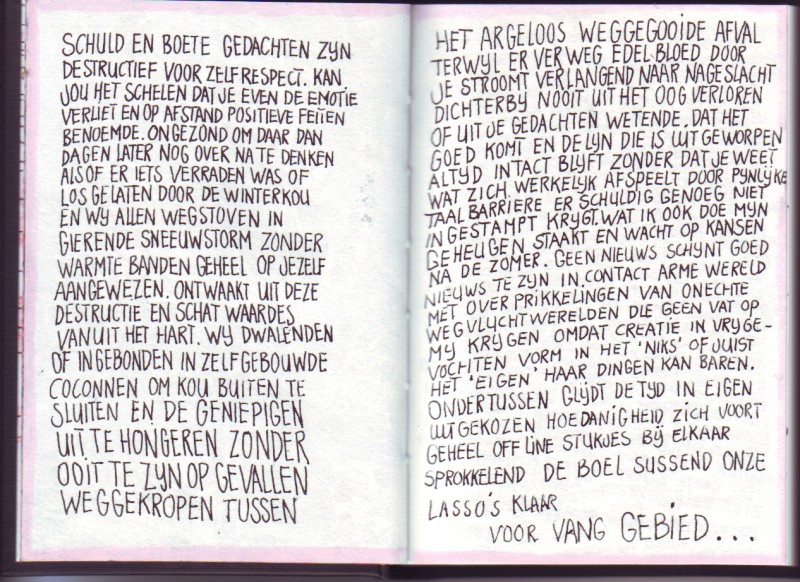 SCHULD EN BOETE GEDACHTEN ZYN
DESTRUCTIEF VOOR ZELFRESPECT. KAN
JOU HET SCHELEN DAT JE EVEN DE EMOTIE
VERLIET EN OP AFSTAND POSITIEVE FEITEN
BENOEMDE. ONGEZOND OM DAAR DAN
DAGEN LATER NOG OVER NA TE DENKEN
ALSOF ER IETS VERRADEN WAS OF
LOS GELATEN DOOR DE WINTERKOU
EN WY ALLEN WEGSTOVEN IN
GIERENDE SNEEUWSTORM ZONDER
WARMTE BANDEN GEHEEL OP JEZELF
AANGEWEZEN. ONTWAAKT UIT DEZE
DESTRUCTIE EN SCHAT WAARDES
VANUIT HET HART. WY DWALENDEN
OF INGEBONDEN IN ZELFGEBOUWDE
COCONNEN OM KOU BUITEN TE
SLUITEN EN DE GENIEPIGEN
UIT TE HONGEREN ZONDER
OOIT TE ZYN OP GEVALLEN
WEGGEKROPEN TUSSEN
HET ARGELOOS WEGGEGOOIDE AFVAL
TERWYL ER VER WEG EDEL BLOED DOOR
JE STROOMT VERLANGEND NAAR NAGESLACHT
DICHTERBY NOOIT UIT HET OOG VERLOREN
OF UIT JE GEDACHTEN WETENDE. DAT HET
GOED KOMT EN DE LYN DIE IS UITGEWORPEN
ALTYD INTACT BLYFT ZONDER DAT JE WEET
WAT ZICH WERKELYK AFSPEELT DOOR PYNLYKE
TAALBARRIERE ER SCHULDIG GENOEG NIET
INGESTAMPT KRYGT. WAT IK OOK DOE MYN
GEHEUGEN STAAKT EN WACHT OP KANSEN
NA DE ZOMER. GEEN NIEUWS SCHYNT GOED
NIEUWS TE ZYN IN. CONTACT ARME WERELD
MET OVER PRIKKELINGEN VAN ONECHTE
WEGVLUCHTWERELDEN DIE GEEN VAT OP
MY KRYGEN OMDAT CREATIE IN VRYGE-
VOCHTEN VORM IN HET 'NIKS' OF JUIST
HET 'EIGEN' HAAR DINGEN KAN BAREN.
ONDERTUSSEN GLIJDT DE TYD IN EIGEN
UITGEKOZEN HOEDANIGHEID ZICH VOORT
GEHEEL OFF LINE STUKJES BIJ ELKAAR
SPROKKELEND DE BOEL SUSSEND ONZE
LASSO'S KLAAR
VOOR VANG GEBIED...